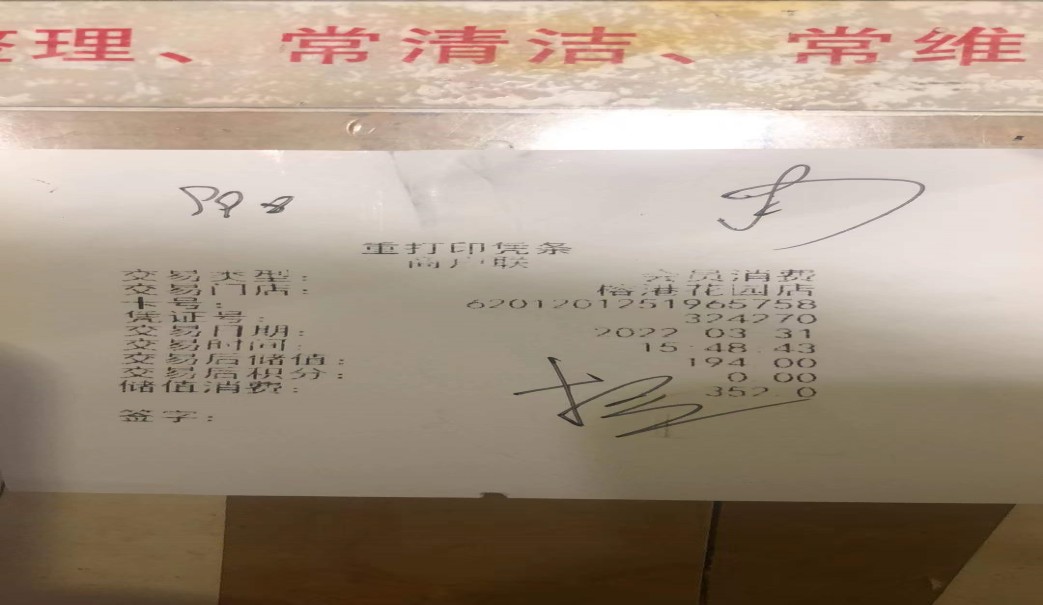 理、常清洁、常维
重打印凭条
商户联
交易类型: 会员消费
交易门店: 榕港花园店
卡号: 6201201251965758
凭证号: 324270
交易日期: 2022 03 31
交易时间: 15 48 43
交易后储值: 194 00
交易后积分: 0 00
储值消费: 352 0
签字: